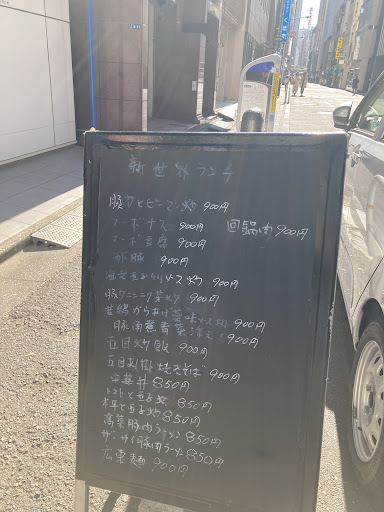 新世界ランチ
豚肉とピーマン炒 900円
マーボナス 900円
回鍋肉 900円
マーボ豆腐 900円
酢豚 900円
ナス炒 900円
豚ニンニク芽炒 900円
若鶏からあげ 900円
豚肉 青菜 900円
五目炒飯 900円
五目あん掛け焼きそば 900円
中華丼 850円
トマトと玉子炒 850円
木耳と玉子炒 850円
高菜豚肉ラーメン 850円
ザーサイ豚肉ラーメン 850円
広東麺 900円